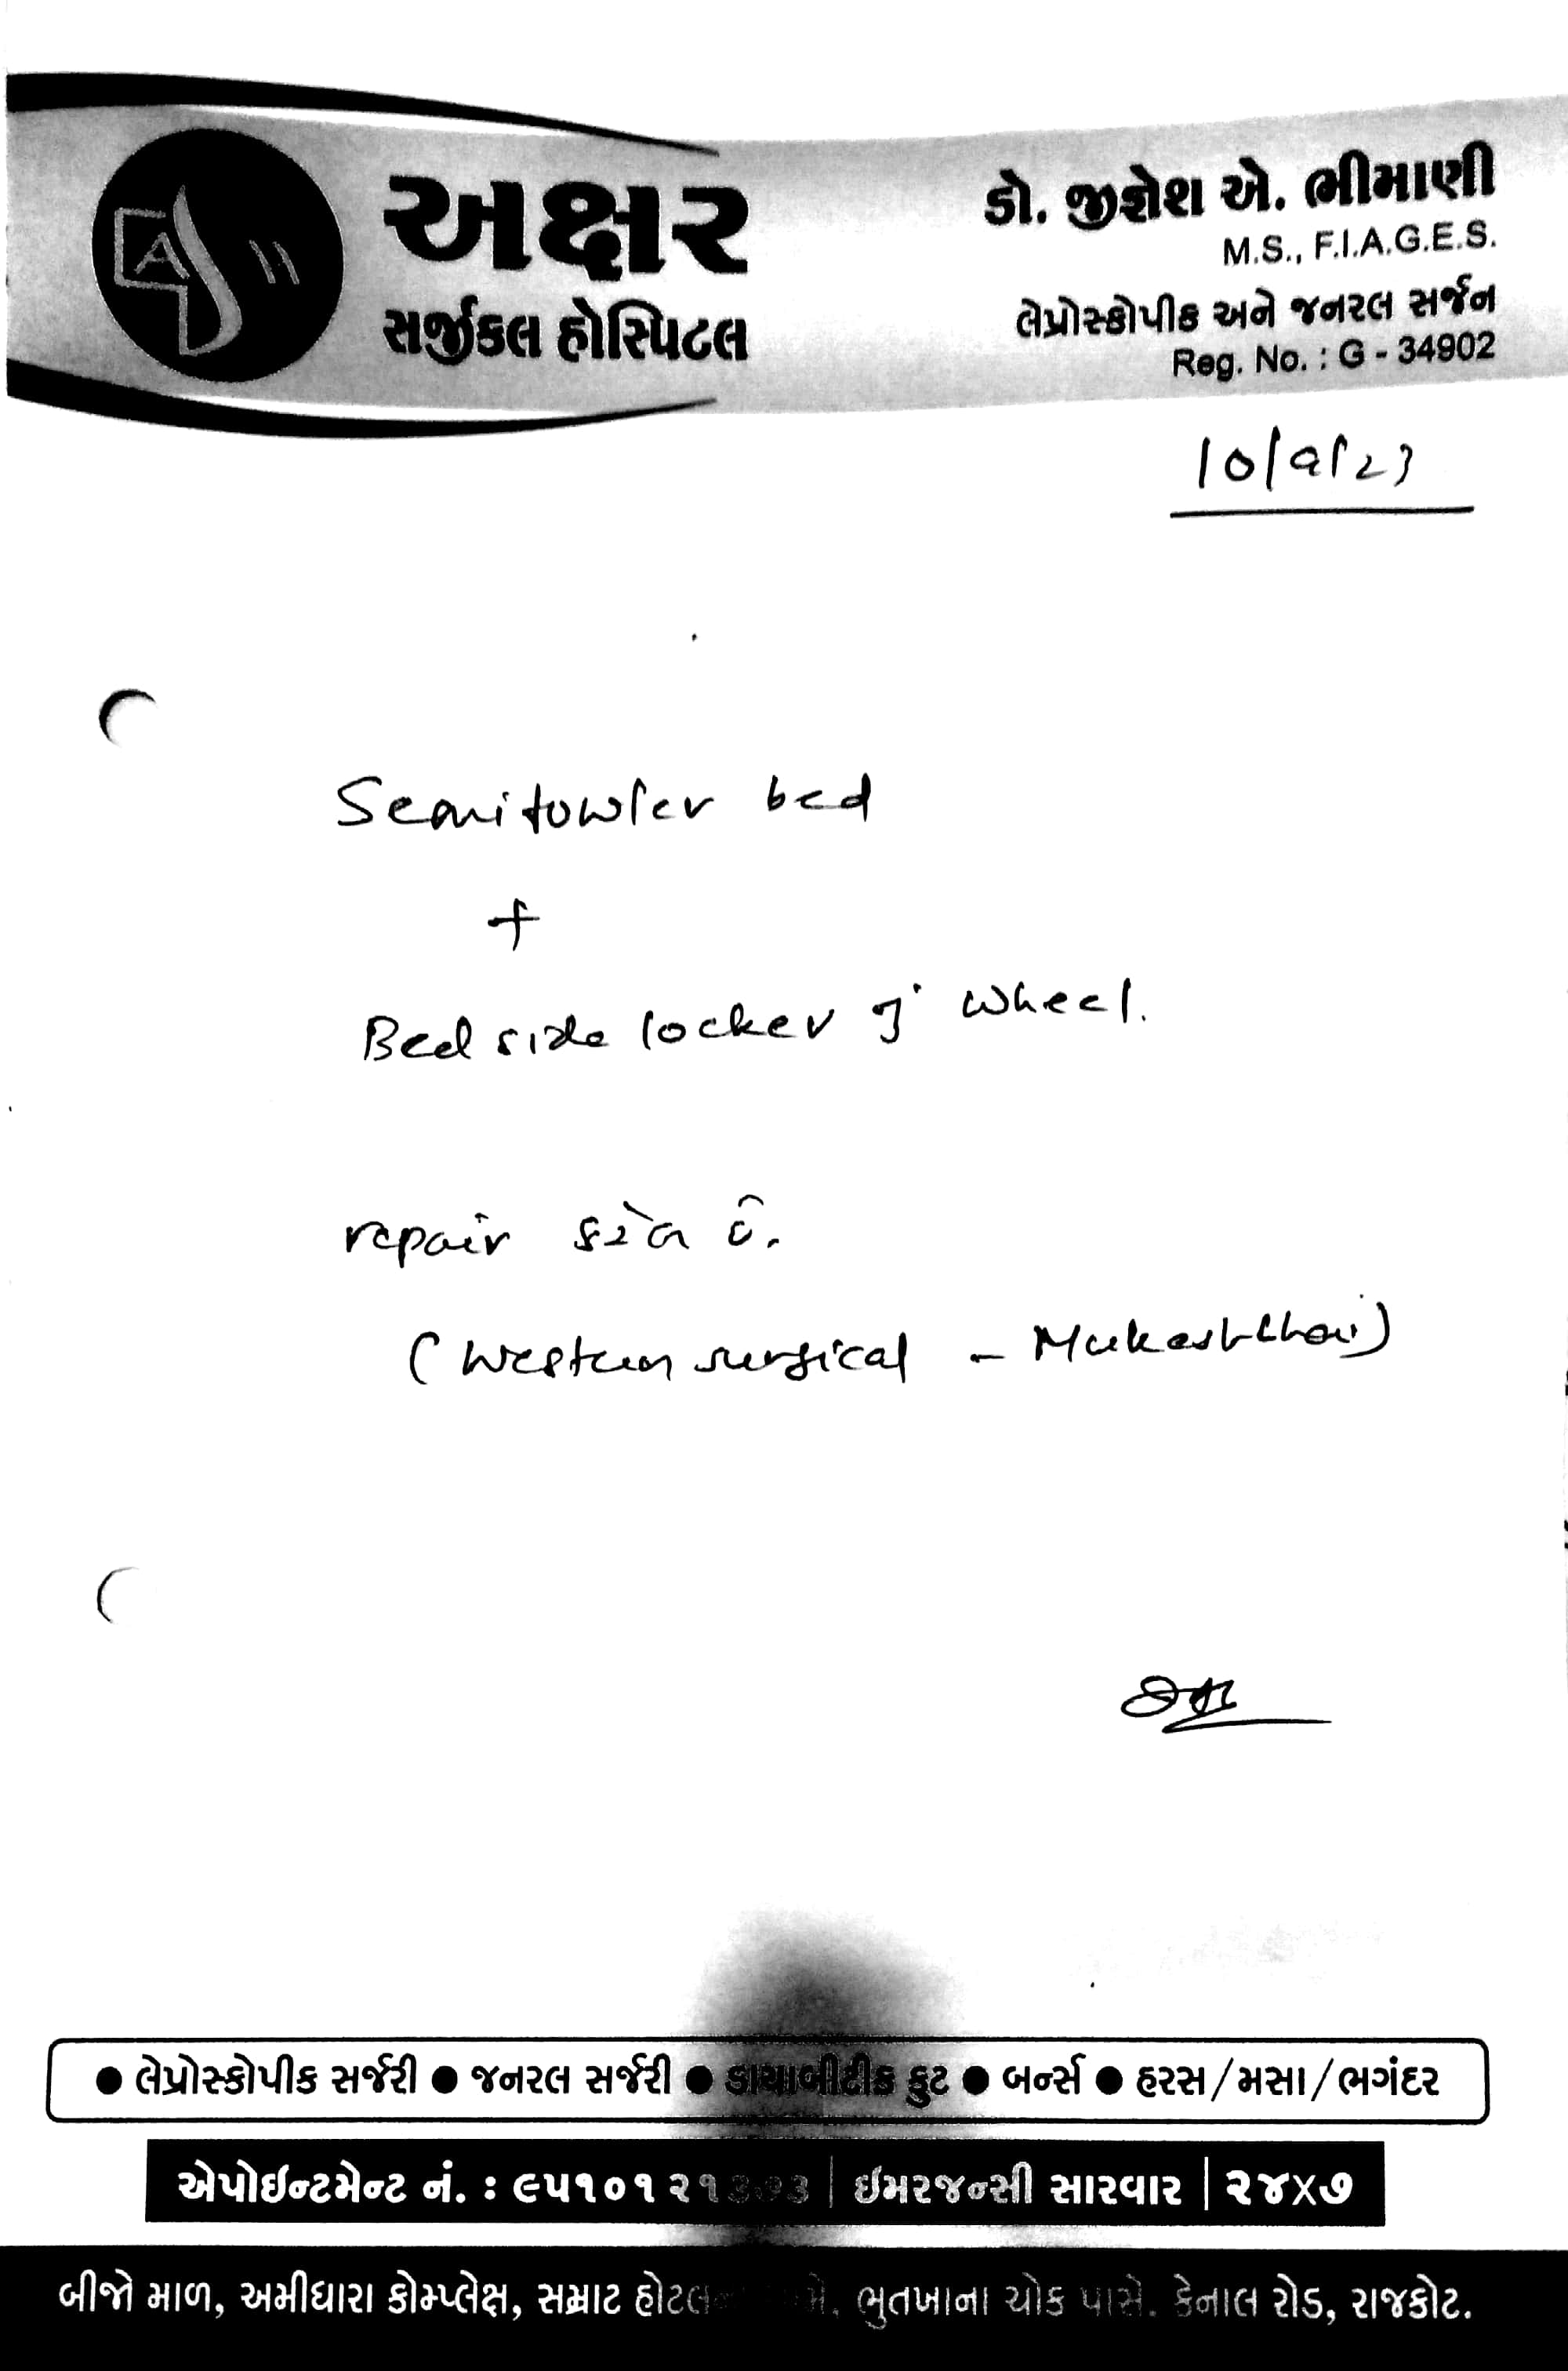 અક્ષર
સર્જીકલ હોસ્પિટલ
ડો. જીજ્ઞેશ એ. ભીમાણી
M.S., F.I.A.G.E.S.
લેપ્રોસ્કોપીક અને જનરલ સર્જન
Reg. No. : G - 34902
10/9/23
Semifowler bed
+
Bed side locker નું wheel.
repair કરેલ છે.
(Western surgical - Mukeshbhai)
● લેપ્રોસ્કોપીક સર્જરી ● જનરલ સર્જરી ● ડાયાબીટીક ફુટ ● બર્ન્સ ● હરસ/મસા/ભગંદર
એપોઇન્ટમેન્ટ નં. : ૯૫૧૦૧ | ઇમરજન્સી સારવાર | ૨૪x૭
બીજો માળ, અમીધારા કોમ્પ્લેક્ષ, સમ્રાટ ભુતખાના ચોક પાસે. કેનાલ રોડ, રાજકોટ.